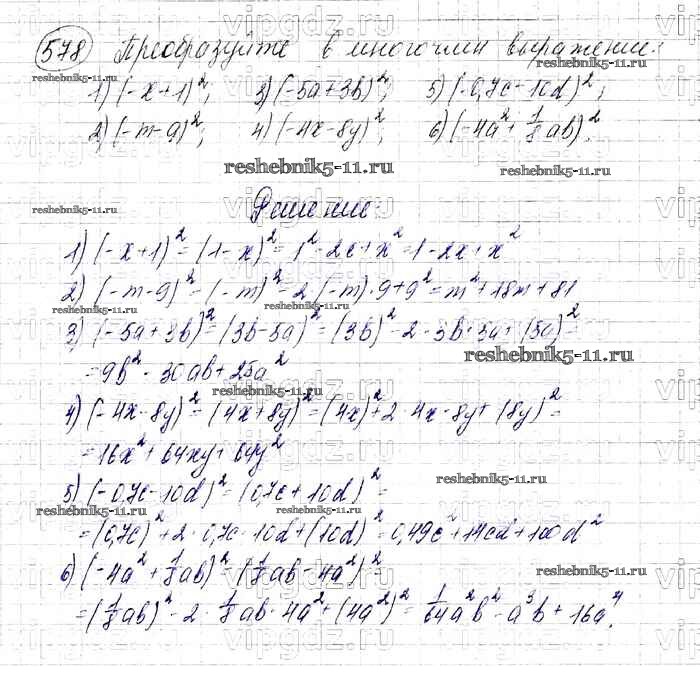 578 Преобразуйте в многочлен выражение:
1) (-x+1)²; 3) (-5a+3b)²; 5) (-0,7c-10d)²;
2) (-m-9)²; 4) (-4x-8y)²; 6) (-4a²+⅛ab)².
Решение:
1) (-x+1)²=(1-x)²=1²-2x+x²=1-2x+x²
2) (-m-9)²=(-m)²=2·(-m)·9+9²=m²+18m+81
3) (-5a+3b)²=(3b-5a)²=(3b)²-2·3b·5a+(5a)²=
=9b²-30ab+25a²
4) (-4x-8y)²=(4x+8y)²=(4x)²+2·4x·8y+(8y)²=
=16x²+64xy+64y²
5) (-0,7c-10d)²=(0,7c+10d)²=
=(0,7c)²+2·0,7c·10d+(10d)²=0,49c²+14cd+100d²
6) (-4a²+⅛ab)²=(⅛ab-4a²)²=
=(⅛ab)²-2·⅛ab·4a²+(4a²)²=1/64a²b²-a³b+16a⁴.
vipgdz.ru
reshebnik5-11.ru